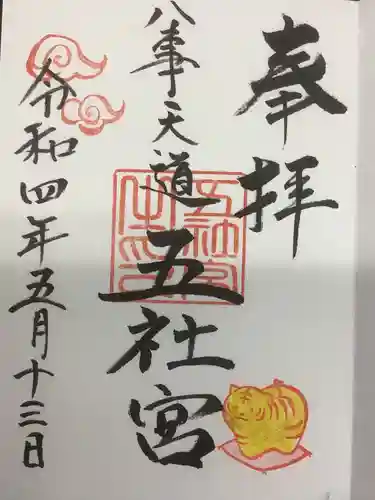 奉拝
八事天道
五社宮
令和四年五月十三日